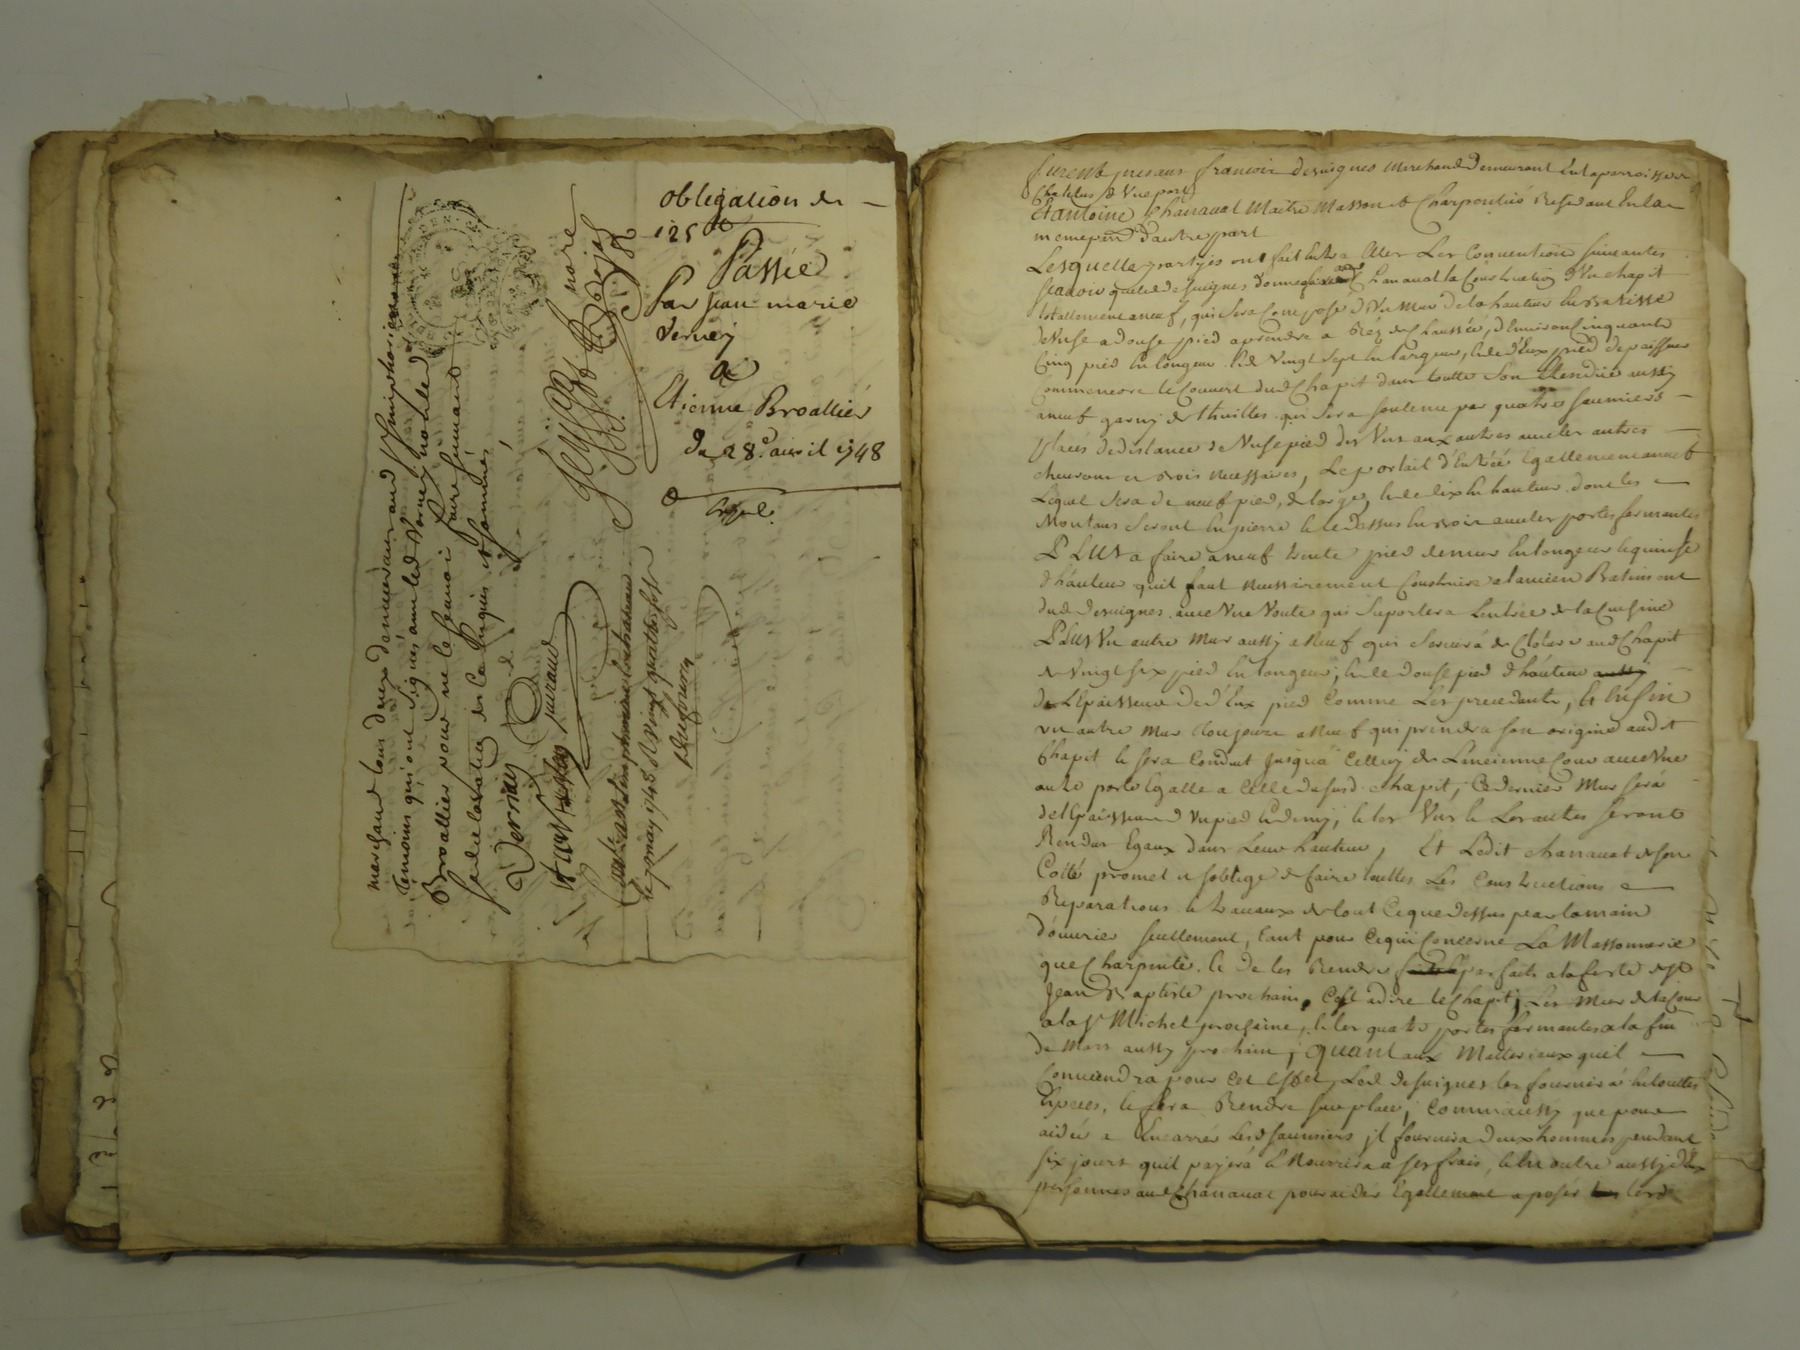 obligation de
125 ₶
Passéé
Par Jean marie
Verney
a
Etienne Broallier
Du 28.e avril 1748
marchand tous deux demeurant aud Simphorien
Temoins qui ont signés avec led Verney non led
Broallier pour ne le scavoir faire suivant
sa declaration de ce Requis et sommés
Verney
juraud
le 7 may 1748
furent presans francois desvignes marchand Demeurant En la parroisse de
Chatelus d Vne part
Et antoine Chanavat Maitre Masson et Charpentié Residant En la
meme parr d'autre part
Lesquelles partyes ont fait Entre Elles Les Conventions suivantes
scavoir que led desvignes donne a Chanavat la Construction d'Vn chapit
totallement aneuf, qui sera Compose d'Vn Mur de la hauteur
de Nuf a douse pied aprendre a Rez de Chaussée, d'Environ Cinquante
Cinq pied En longeur Et de Vingt sept En largeur, Et de d'Eux pied depaisseur
Commencera le Couvert dud Chapit dans toutte son Etendüe aussy
aneuf garny de thuilles qui sera soutenu par quatre saumiers
placés de distance de Nuf pied des Vns aux autres avec les autres
chevrons et bois necessaires, Le portail d'Entréé Egallement aneuf
Lequel sera de neuf pied, de large, Et de dix En hauteur dont les
Montans seront En pierre Et le dessus En bois avec les portes fermantes
PLUS a faire aneuf trente pied de mur En longeur Et quinse
d'hauteur quil faut Necessairement Construire a lancien Batiment
dud desvignes avec Vne Voute qui suportera l'entrée de la Cuisine
PLUS Vn autre Mur aussy a Neuf qui servira de Cloture aud Chapit
de Vingt six pied En longeur, Et de douse pied d'hauteur
de L'Epaisseur de d'Eux pied Comme Les precedants, Et Enfin
vn autre Mur Toujours a Neuf qui prendra son origine audit
Chapit Et sera Conduit jusqua Celluy de Lancienne Cour avec Vne
autre porte Egalle a Celle dususd chapit, Ce dernier Mur sera
de l'Epaisseur d'Vn pied Et demy, Et les Vns Et Les autres seront
Rendus Egaux dans Leur hauteur, Et Ledit chanavat de son
Coté promet et soblige de faire touttes Les Constructions
Reparations Et travaux de tout Ce que dessus par la main
d'ouvrier seullement, tant pour Ce qui Concerne La Massonnerie
que Charpente. Et De les Rendre parfaits a la feste de St
Jean Baptiste prochain, C'est adire le Chapit, Les Murs de la Cour
a la St Michel prochaine, Et les quatre portes fermantes a la fin
de Mars aussy prochain, quant aux Matteriaux quil
Conviendra pour Cet Effet, Led desvignes les fournira En touttes
Especes, Et fera Rendre sur place, Comme aussy que pour
aider a Encarrer Lesd saumiers jl fournira deux hommes pendant
six jours quil payera Et Nourrira a ses frais, Et En outre aussy d'Eux
personnes aud Chanavat pour aider Egallement a poser lesd